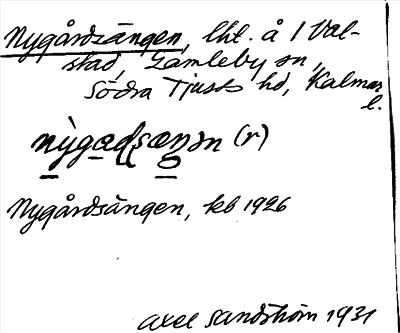 Nygårdsängen, lht. å 1 Val-
stad, Gamleby sn,
Södra Tjusts hd, Kalmar
l.
nỳgad̨sæŋən (r)
Nygårdsängen, kb 1926
Axel Sandström 1931